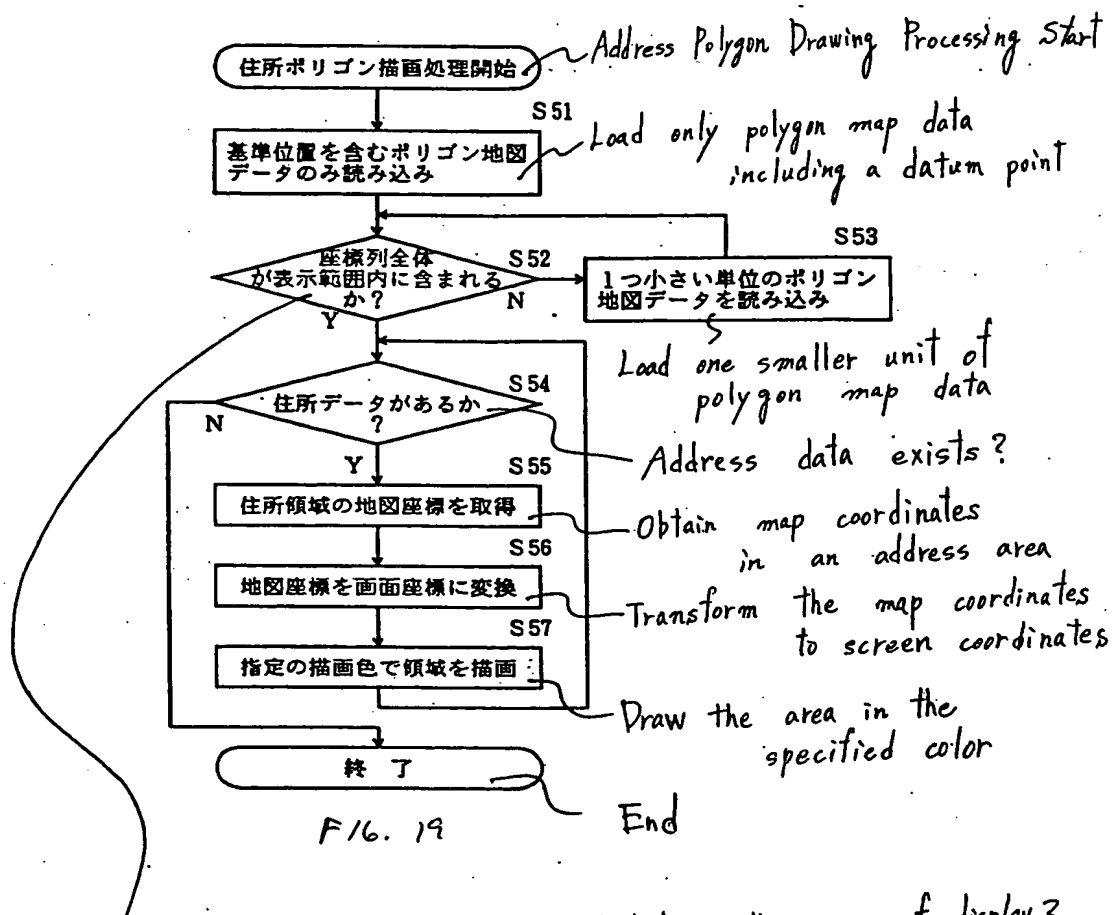 住所ポリゴン描画処理開始
Address Polygon Drawing Processing Start
S51
基準位置を含むポリゴン地図
データのみ読み込み
Load only polygon map data
including a datum point
S52
座標列全体
が表示範囲内に含まれる
か?
N
Y
S53
1つ小さい単位のポリゴン
地図データを読み込み
Load one smaller unit of
polygon map data
S54
住所データがあるか
?
N
Y
Address data exists?
S55
住所領域の地図座標を取得
Obtain map coordinates
in an address area
S56
地図座標を画面座標に変換
Transform the map coordinates
to screen coordinates
S57
指定の描画色で領域を描画
Draw the area in the
specified color
終了
End
FIG. 19
f display?